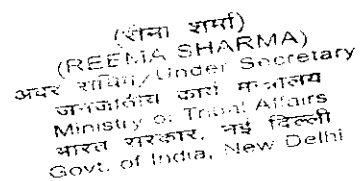 (रीना शर्मा)
(REEMA SHARMA)
अवर सचिव/Under Secretary
जनजातीय कार्य मंत्रालय
Ministry of Tribal Affairs
भारत सरकार, नई दिल्ली
Govt. of India, New Delhi